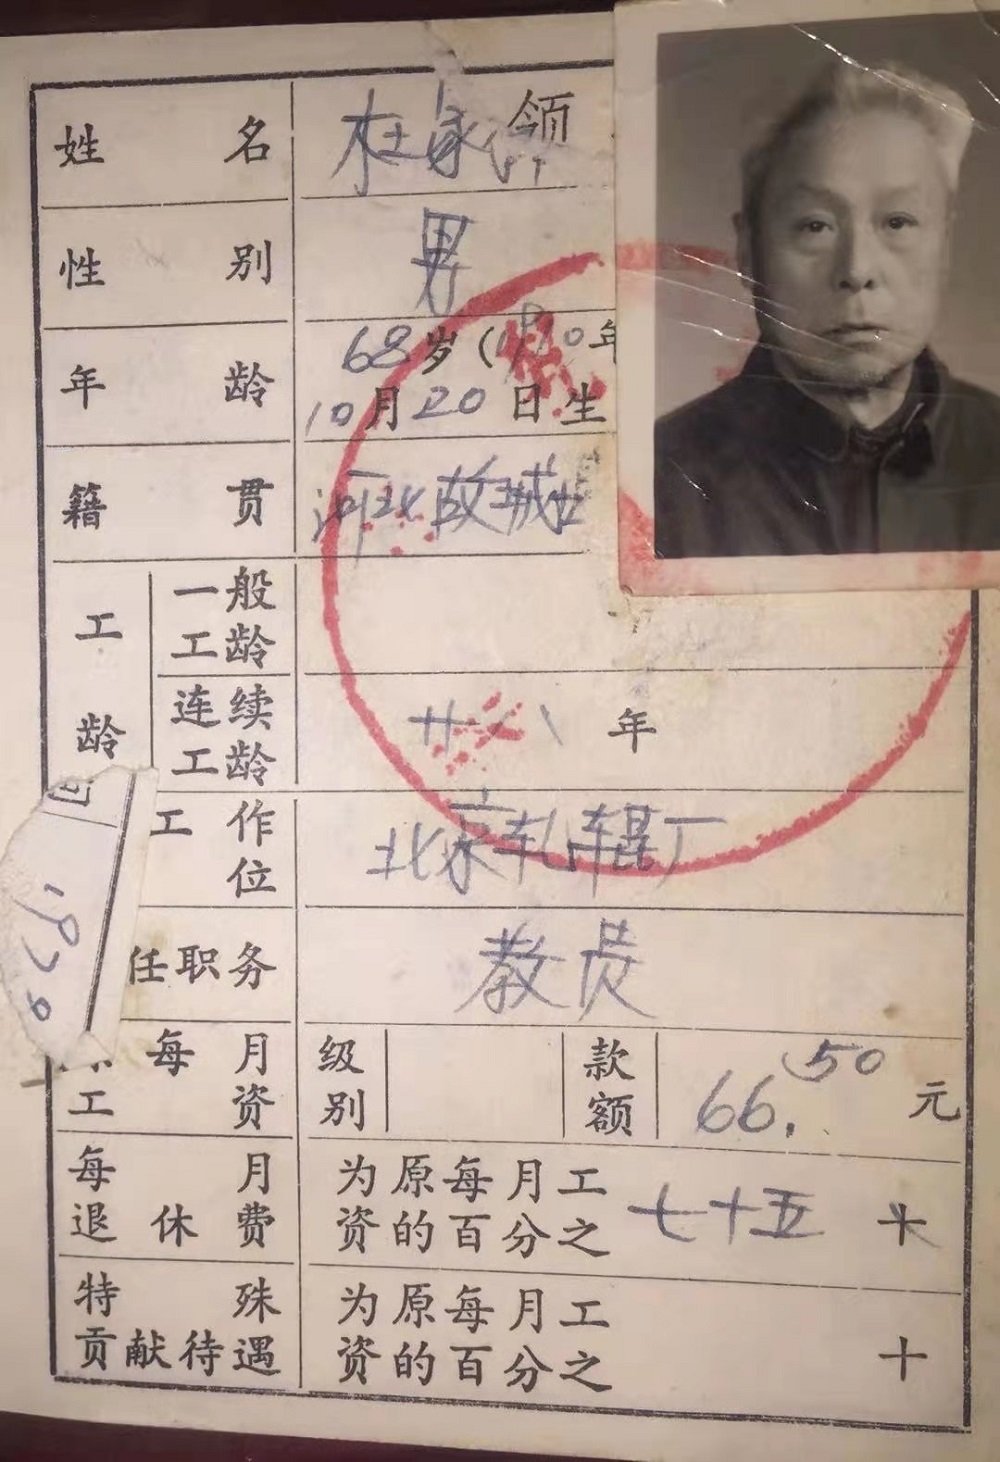 姓名 杜永领
性别 男
年龄 68岁（1910年
10月20日生
籍贯 河北故城
工龄
一般
工龄
连续
工龄 廿八年
工作
位 北京轧辊厂
任职务 教员
每月
工资 级别 款额 66.50元
每月
退休费 为原每月工
资的百分之七十五
特殊
贡献待遇 为原每月工
资的百分之 十